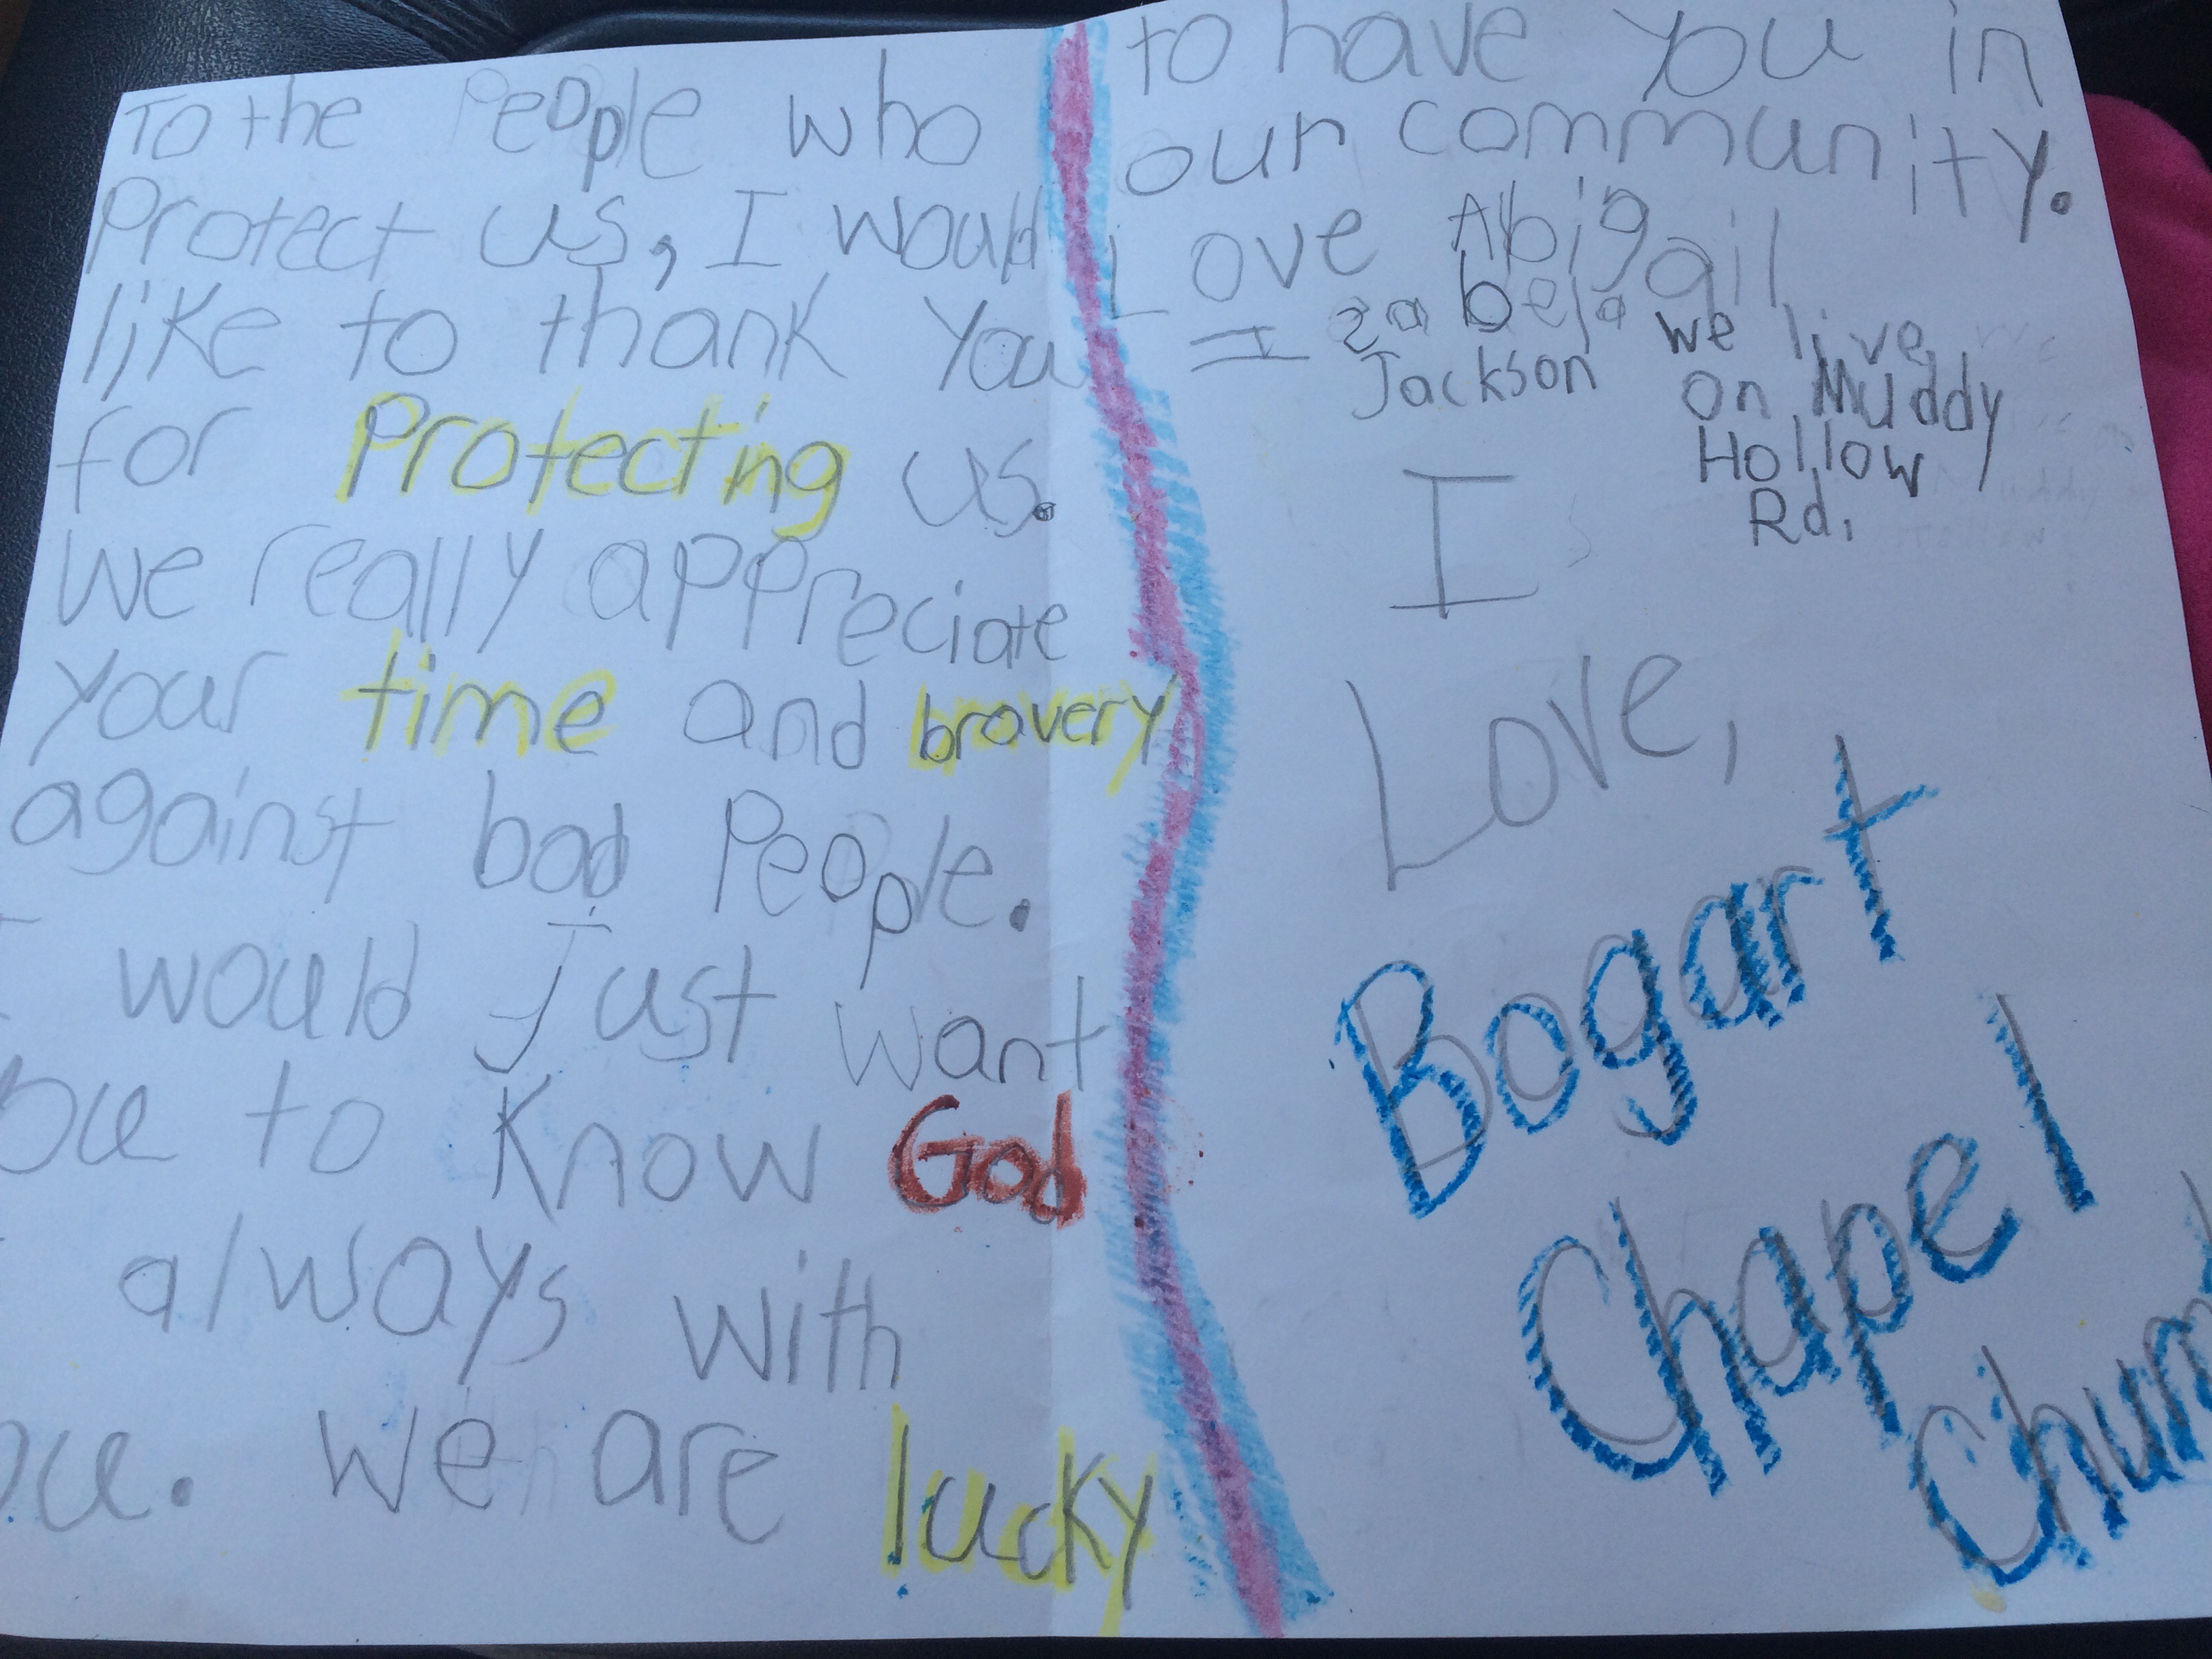 To the People who
Protect us, I would
like to thank You
for Protecting us.
We really appreciate
your time and bravery
against bad People.
I would Just want
ou to Know God
always with
ou. We are lucky
to have you in
our community.
Love Abigail
Isabela
Jackson
we live
on Muddy
Hollow
Rd.
I
Love,
Bogart
Chapel
Chur